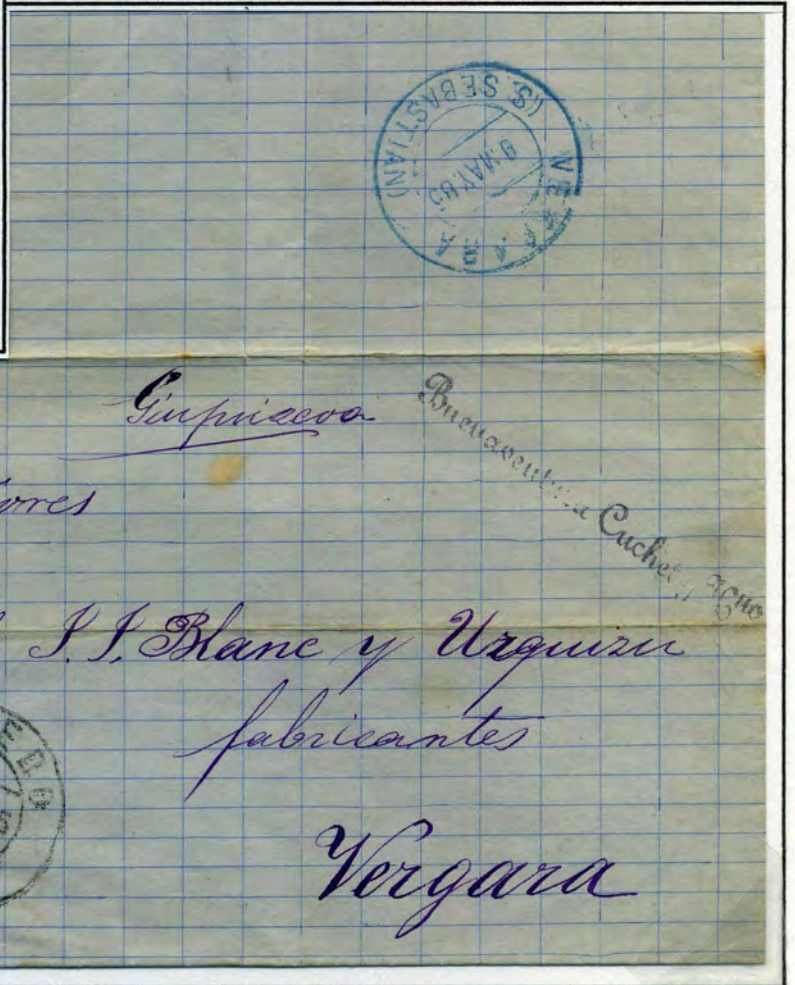 VERGARA
(S. SEBASTIAN)
9 MAY 85
Guipúzcoa
Buenaventura
ores
J. J. Blanc y Uzquizu
fabricantes
Vergara